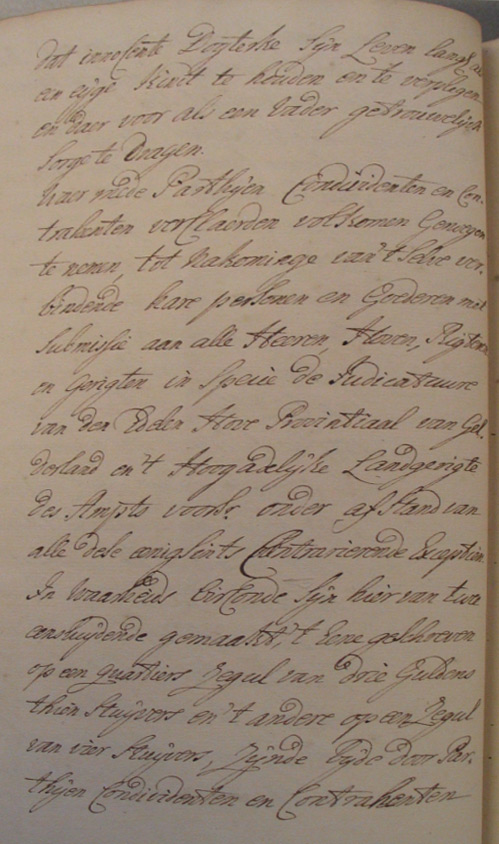 dat innosente Dogterke sijn Leven lang als
een eijge Kindt te houden en te verplegen
en daer voor als een Vader getrouwelijck
Sorge te Dragen.
Waer mede Parthijen Condividenten en Con-
trahenten verclaerden volkomen Genoegen
te nemen, tot Nakominge van 't Selve ver-
bindende hare personen en Goederen met
Submissie aan alle Heeren, Hoven, Rigteren
en Gerigten in Specie de Judicatuure
van den Edelen Hove Provintiaal van Gel-
derland en 't Hoogadelijke Landgerigte
des Ampts voorsr. onder afstand van
alle dese eenigsints Contrarierende Exceptien.
In Waarheids Oirconde sijn hier van twee
eensluijdende gemaakt, 't Eene geschreven
op een quartiers Zegul van drie Guldens
thien Stuijvers en 't andere op een Zegul
van vier Stuijvers, Zijnde bijde door Par-
thijen Condividenten en Contrahenten